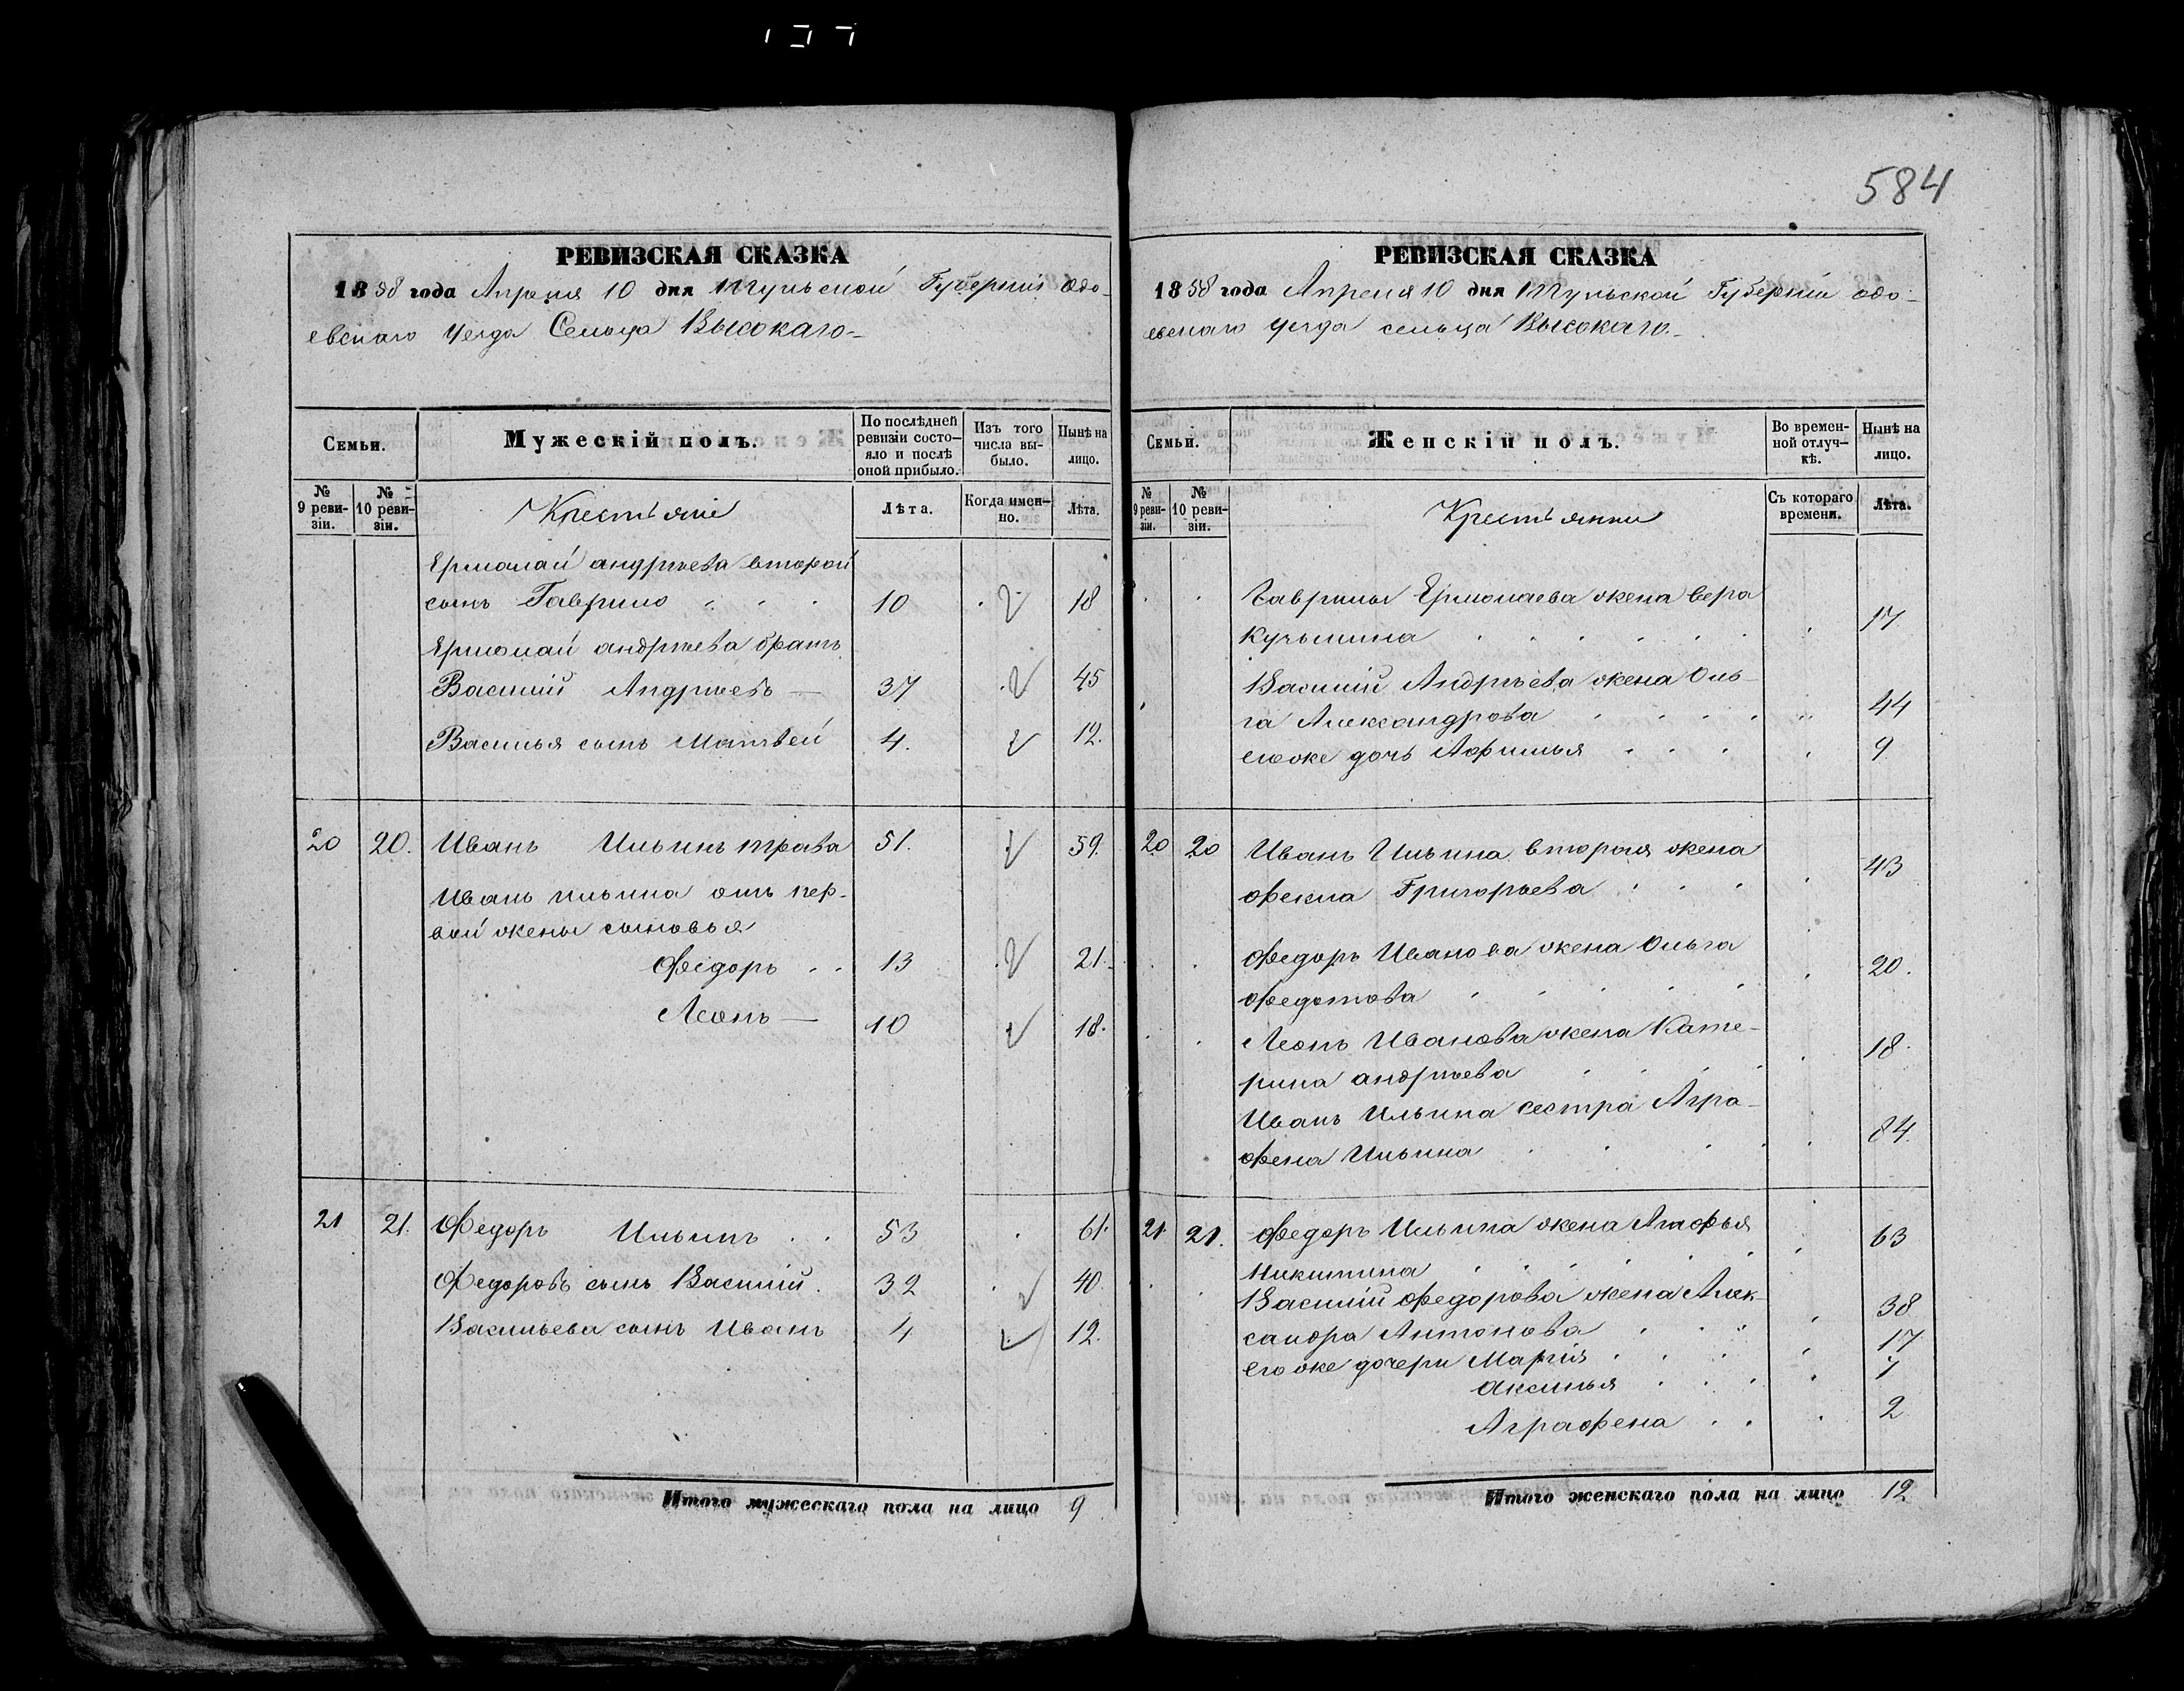 584
РЕВИЗСКАЯ СКАЗКА
1858 года Апреля 10 дня Тульской Губернии Одо-
евскаго Уезда Сельца Высокаго-
Семьи.
Мужескій полъ.
По послѣдней
ревизіи состо-
яло и послѣ
оной прибыло.
Изъ того
числа вы-
было.
Нынѣ на
лицо.
№
9 реви-
зіи.
№
10 реви-
зіи.
Крестьяне
Лѣта.
Когда имен-
но.
Лѣта.
Ермолай андрѣева второй
сынъ Гаврило 10 18
Ермолай андрѣева братъ
Василій Андрѣевъ — 37 45
Василья сынъ Матвѣй 4. 12.
20 20. Иванъ Ильинъ трава 51. 59.
Иванъ ильина отъ пер-
вой жены сыновья
Федоръ 13 21.
Леонъ — 10 18.
21 21. Федоръ Ильинъ 53 61.
Федоровъ сынъ Василий. 32 40
Васильева сынъ Иванъ 4 12.
Итого мужескаго пола на лицо 9
РЕВИЗСКАЯ СКАЗКА
1858 года Апреля 10 дня Тульской Губерніи одо-
евскаго уезда сельца Высокаго.-
Семьи.
Женскій полъ.
Во времен-
ной отлуч-
кѣ.
Нынѣ на
лицо.
№
9 реви-
зіи.
№
10 реви-
зіи.
Крестьянки
Съ котораго
времени.
Лѣта.
Гаврилы Ермолаева жена вера
Кузьмина 17
Василий Андрѣева жена Оль-
га Александрова 44
его же дочь Афимья 9
20 20 Иванъ Ильина вторая жена
Фекла Григорьева 43
Федоръ Иванова жена Ольга
Федотова 20.
Леонъ Иванова жена Кате-
рина андрѣева 18.
Иванъ Ильина сестра Агра-
фена Ильина 84.
21 21. Федоръ Ильина жена Агафья
Никитина 63
Василий Федорова жена Алек-
сандра Антонова 38
его же дочери Марія 17
Аксинья 7
Аграфена 2
Итого женскаго пола на лицо 12